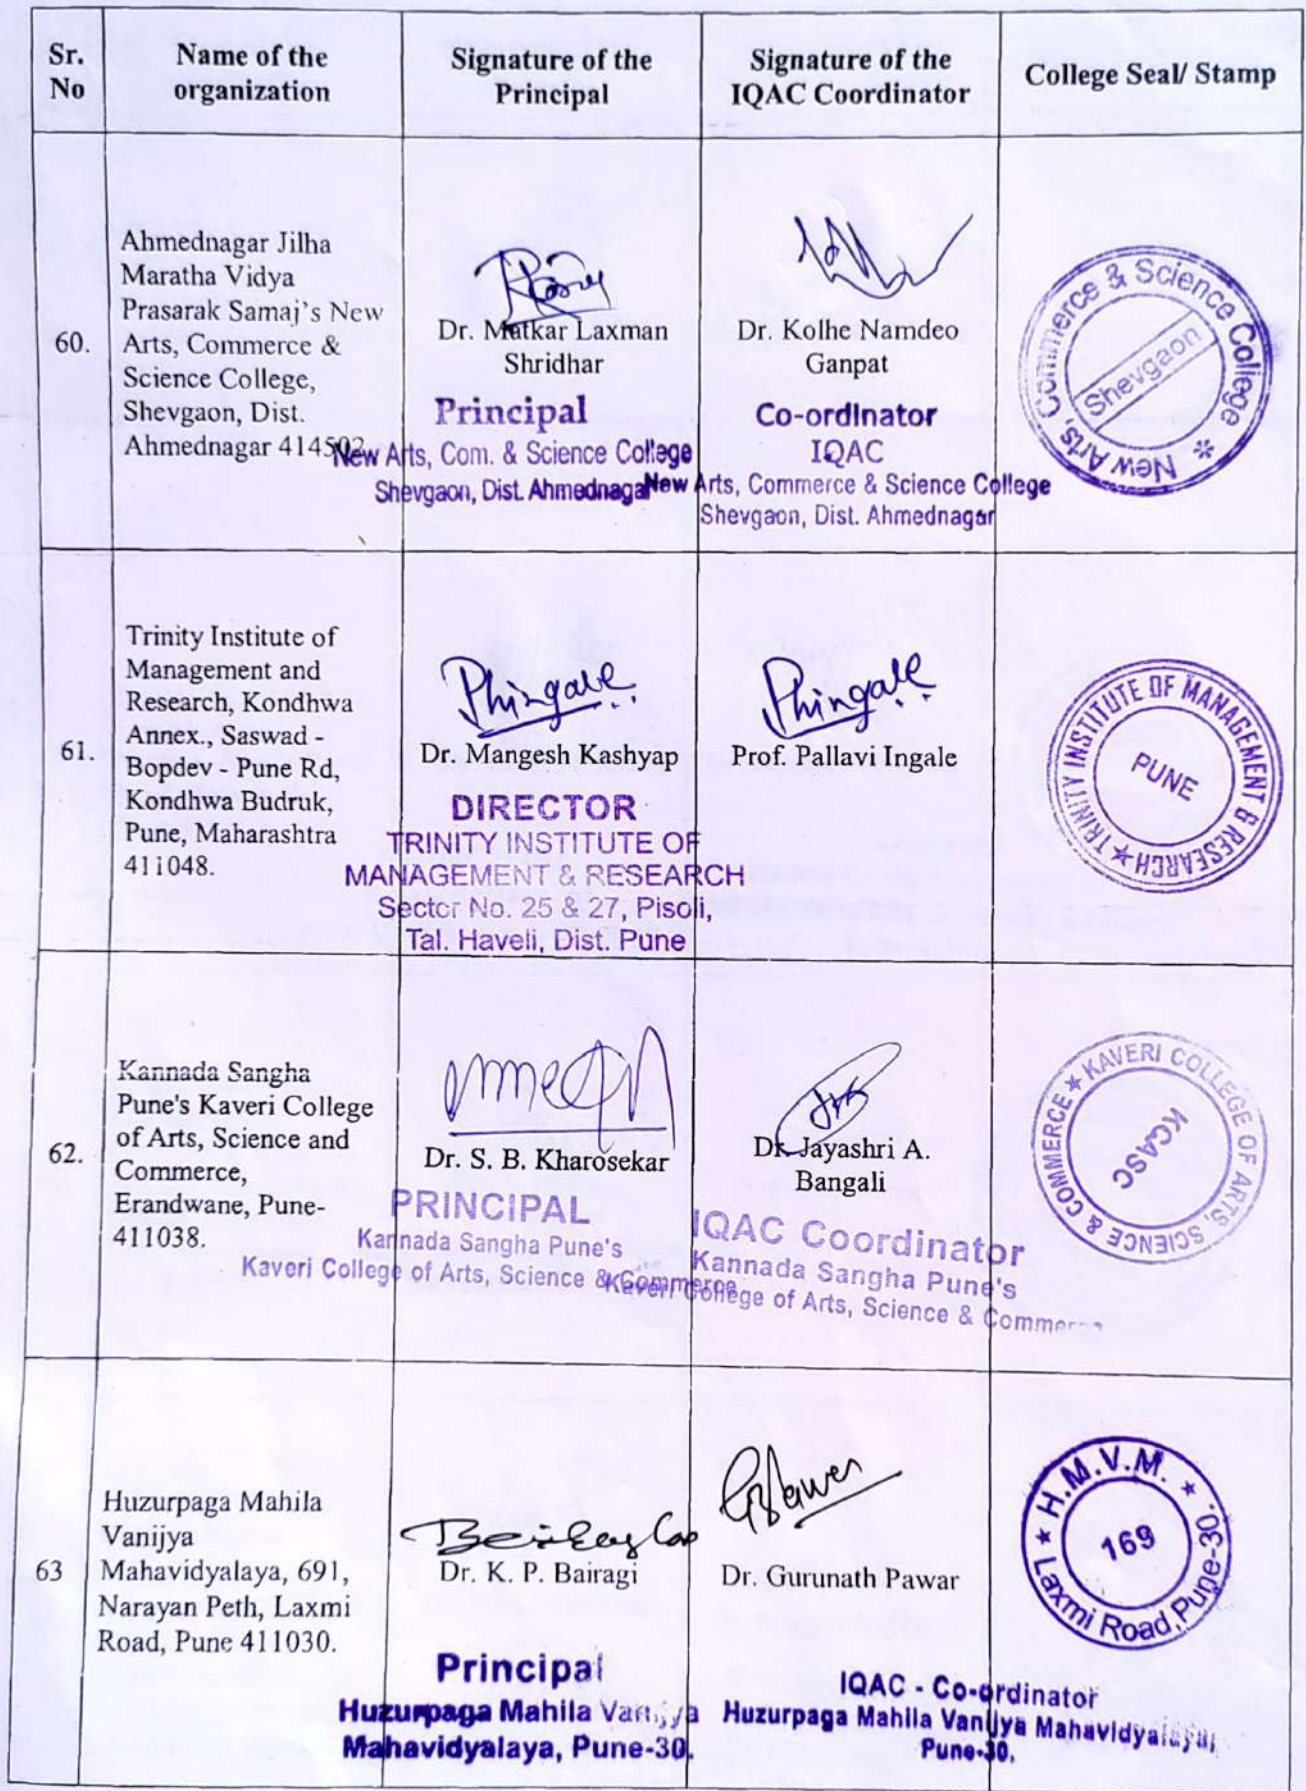 Sr.
No
Name of the
organization
Signature of the
Principal
Signature of the
IQAC Coordinator
College Seal/ Stamp
60.
Ahmednagar Jilha
Maratha Vidya
Prasarak Samaj's New
Arts, Commerce &
Science College,
Shevgaon, Dist.
Ahmednagar 414502
Dr. Matkar Laxman
Shridhar
Principal
New Arts, Com. & Science College
Shevgaon, Dist. Ahmednagar
Dr. Kolhe Namdeo
Ganpat
Co-ordinator
IQAC
New Arts, Commerce & Science College
Shevgaon, Dist. Ahmednagar
New Arts, Commerce & Science College *
Shevgaon
61.
Trinity Institute of
Management and
Research, Kondhwa
Annex., Saswad -
Bopdev - Pune Rd,
Kondhwa Budruk,
Pune, Maharashtra
411048.
Phingale
Dr. Mangesh Kashyap
DIRECTOR
TRINITY INSTITUTE OF
MANAGEMENT & RESEARCH
Sector No. 25 & 27, Pisoli,
Tal. Haveli, Dist. Pune
Phingale
Prof. Pallavi Ingale
★ TRINITY INSTITUTE OF MANAGEMENT & RESEARCH
PUNE
62.
Kannada Sangha
Pune's Kaveri College
of Arts, Science and
Commerce,
Erandwane, Pune-
411038.
Dr. S. B. Kharosekar
PRINCIPAL
Kannada Sangha Pune's
Kaveri College of Arts, Science & Commerce
Dr. Jayashri A.
Bangali
IQAC Coordinator
Kannada Sangha Pune's
Kaveri College of Arts, Science & Commerce
★ KAVERI COLLEGE OF ARTS, SCIENCE & COMMERCE
KCASC
63
Huzurpaga Mahila
Vanijya
Mahavidyalaya, 691,
Narayan Peth, Laxmi
Road, Pune 411030.
Dr. K. P. Bairagi
Principal
Huzurpaga Mahila Vanijya
Mahavidyalaya, Pune-30.
GPawar
Dr. Gurunath Pawar
IQAC - Co-ordinator
Huzurpaga Mahila Vanijya Mahavidyalaya,
Pune-30.
★ H.M.V.M. ★
Laxmi Road, Pune-30.
169